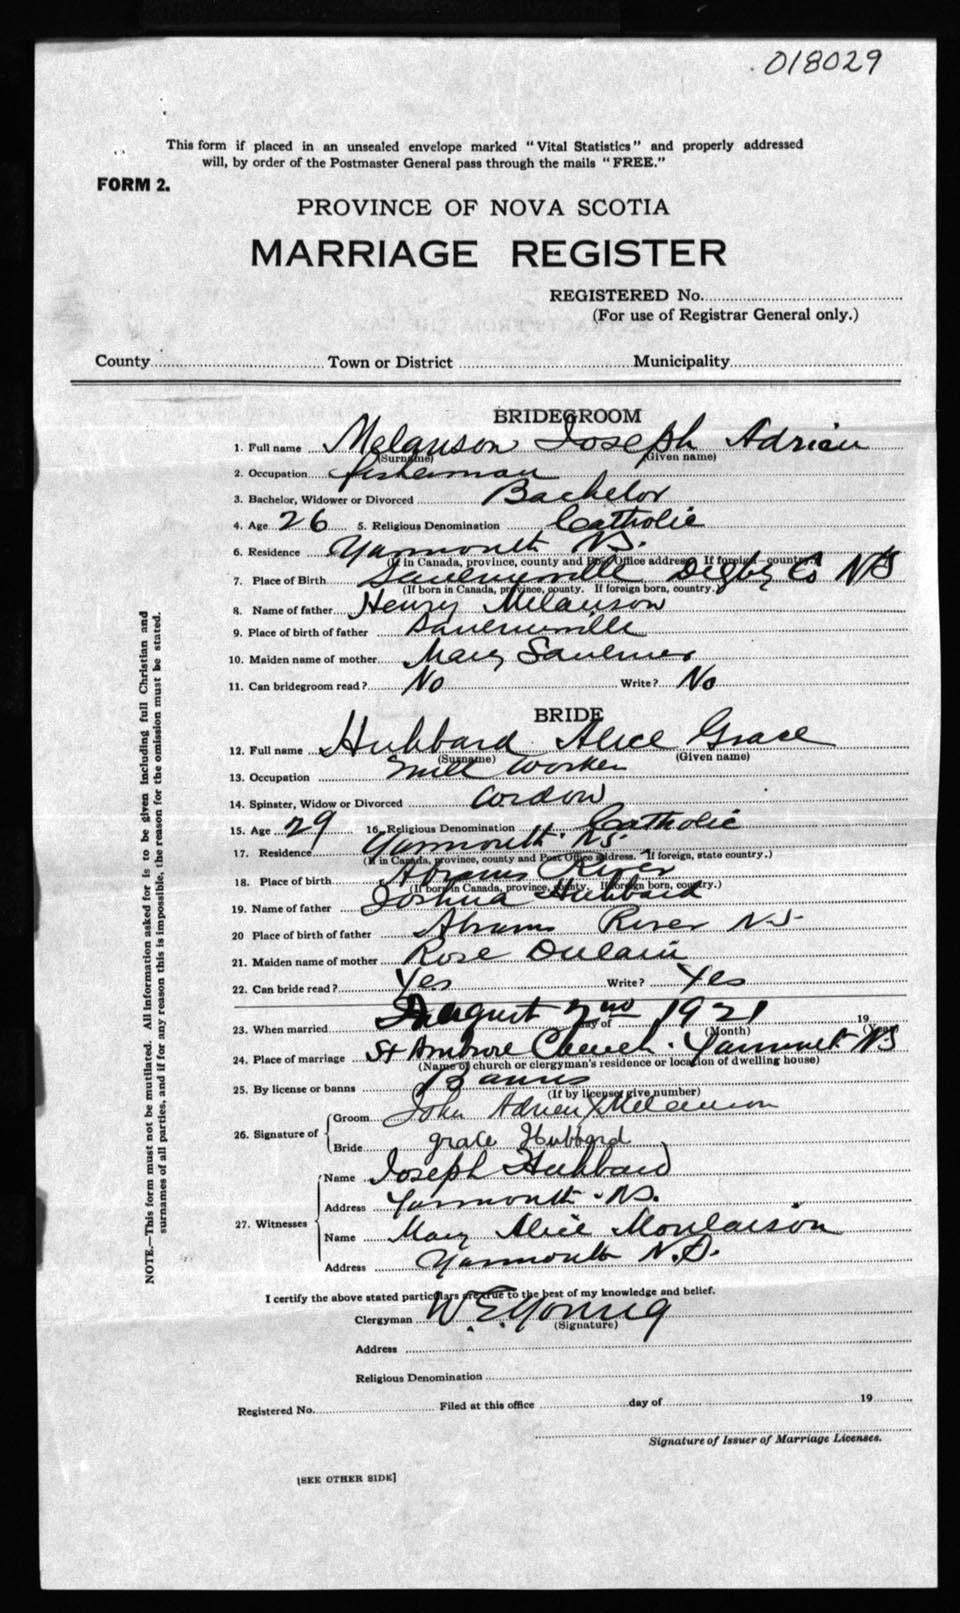 018029
This form if placed in an unsealed envelope marked "Vital Statistics" and properly addressed
will, by order of the Postmaster General pass through the mails "FREE."
FORM 2.
PROVINCE OF NOVA SCOTIA
MARRIAGE REGISTER
REGISTERED No.
(For use of Registrar General only.)
County Town or District Municipality
BRIDEGROOM
1. Full name Melanson Joseph Adrien
(Surname) (Given name)
2. Occupation fisherman
3. Bachelor, Widower or Divorced Bachelor
4. Age 26 5. Religious Denomination Catholic
6. Residence Yarmouth NS.
(If in Canada, province, county and Post Office address. If foreign country.)
7. Place of Birth Saulnierville Digby Co NS
(If born in Canada, province, county. If foreign born, country.)
8. Name of father Henry Melanson
9. Place of birth of father Saulnierville
10. Maiden name of mother Mary Saulnier
11. Can bridegroom read? No Write? No
BRIDE
12. Full name Hubbard Alice Grace
(Surname) (Given name)
13. Occupation Mill Worker
14. Spinster, Widow or Divorced
15. Age 29 16. Religious Denomination Catholic
17. Residence Yarmouth NS.
(If in Canada, province, county and Post Office address. If foreign, state country.)
18. Place of birth Abrams River
(If born in Canada, province, county. If foreign born, country.)
19. Name of father Joshua Hubbard
20 Place of birth of father Abrams River N.S.
21. Maiden name of mother Rose
22. Can bride read? Yes Write? Yes
23. When married August 2nd day of 1921 19
(Month) (Year)
24. Place of marriage St Ambrose Church. Yarmouth NS
(Name of church or clergyman's residence or location of dwelling house)
25. By license or banns Banns
(If by license, give number)
26. Signature of Groom John Adrien X Melanson
Bride grace Hubbard
27. Witnesses Name Joseph Hubbard
Address Yarmouth NS.
Name Mary Alice
Address Yarmouth N.S.
I certify the above stated particulars are true to the best of my knowledge and belief.
Clergyman W. E. Young
(Signature)
Address
Religious Denomination
Registered No. Filed at this office day of 19
Signature of Issuer of Marriage Licenses.
[SEE OTHER SIDE]
NOTE.—This form must not be mutilated. All information asked for is to be given including full Christian and
surnames of all parties, and if for any reason this is impossible, the reason for the omission must be stated.